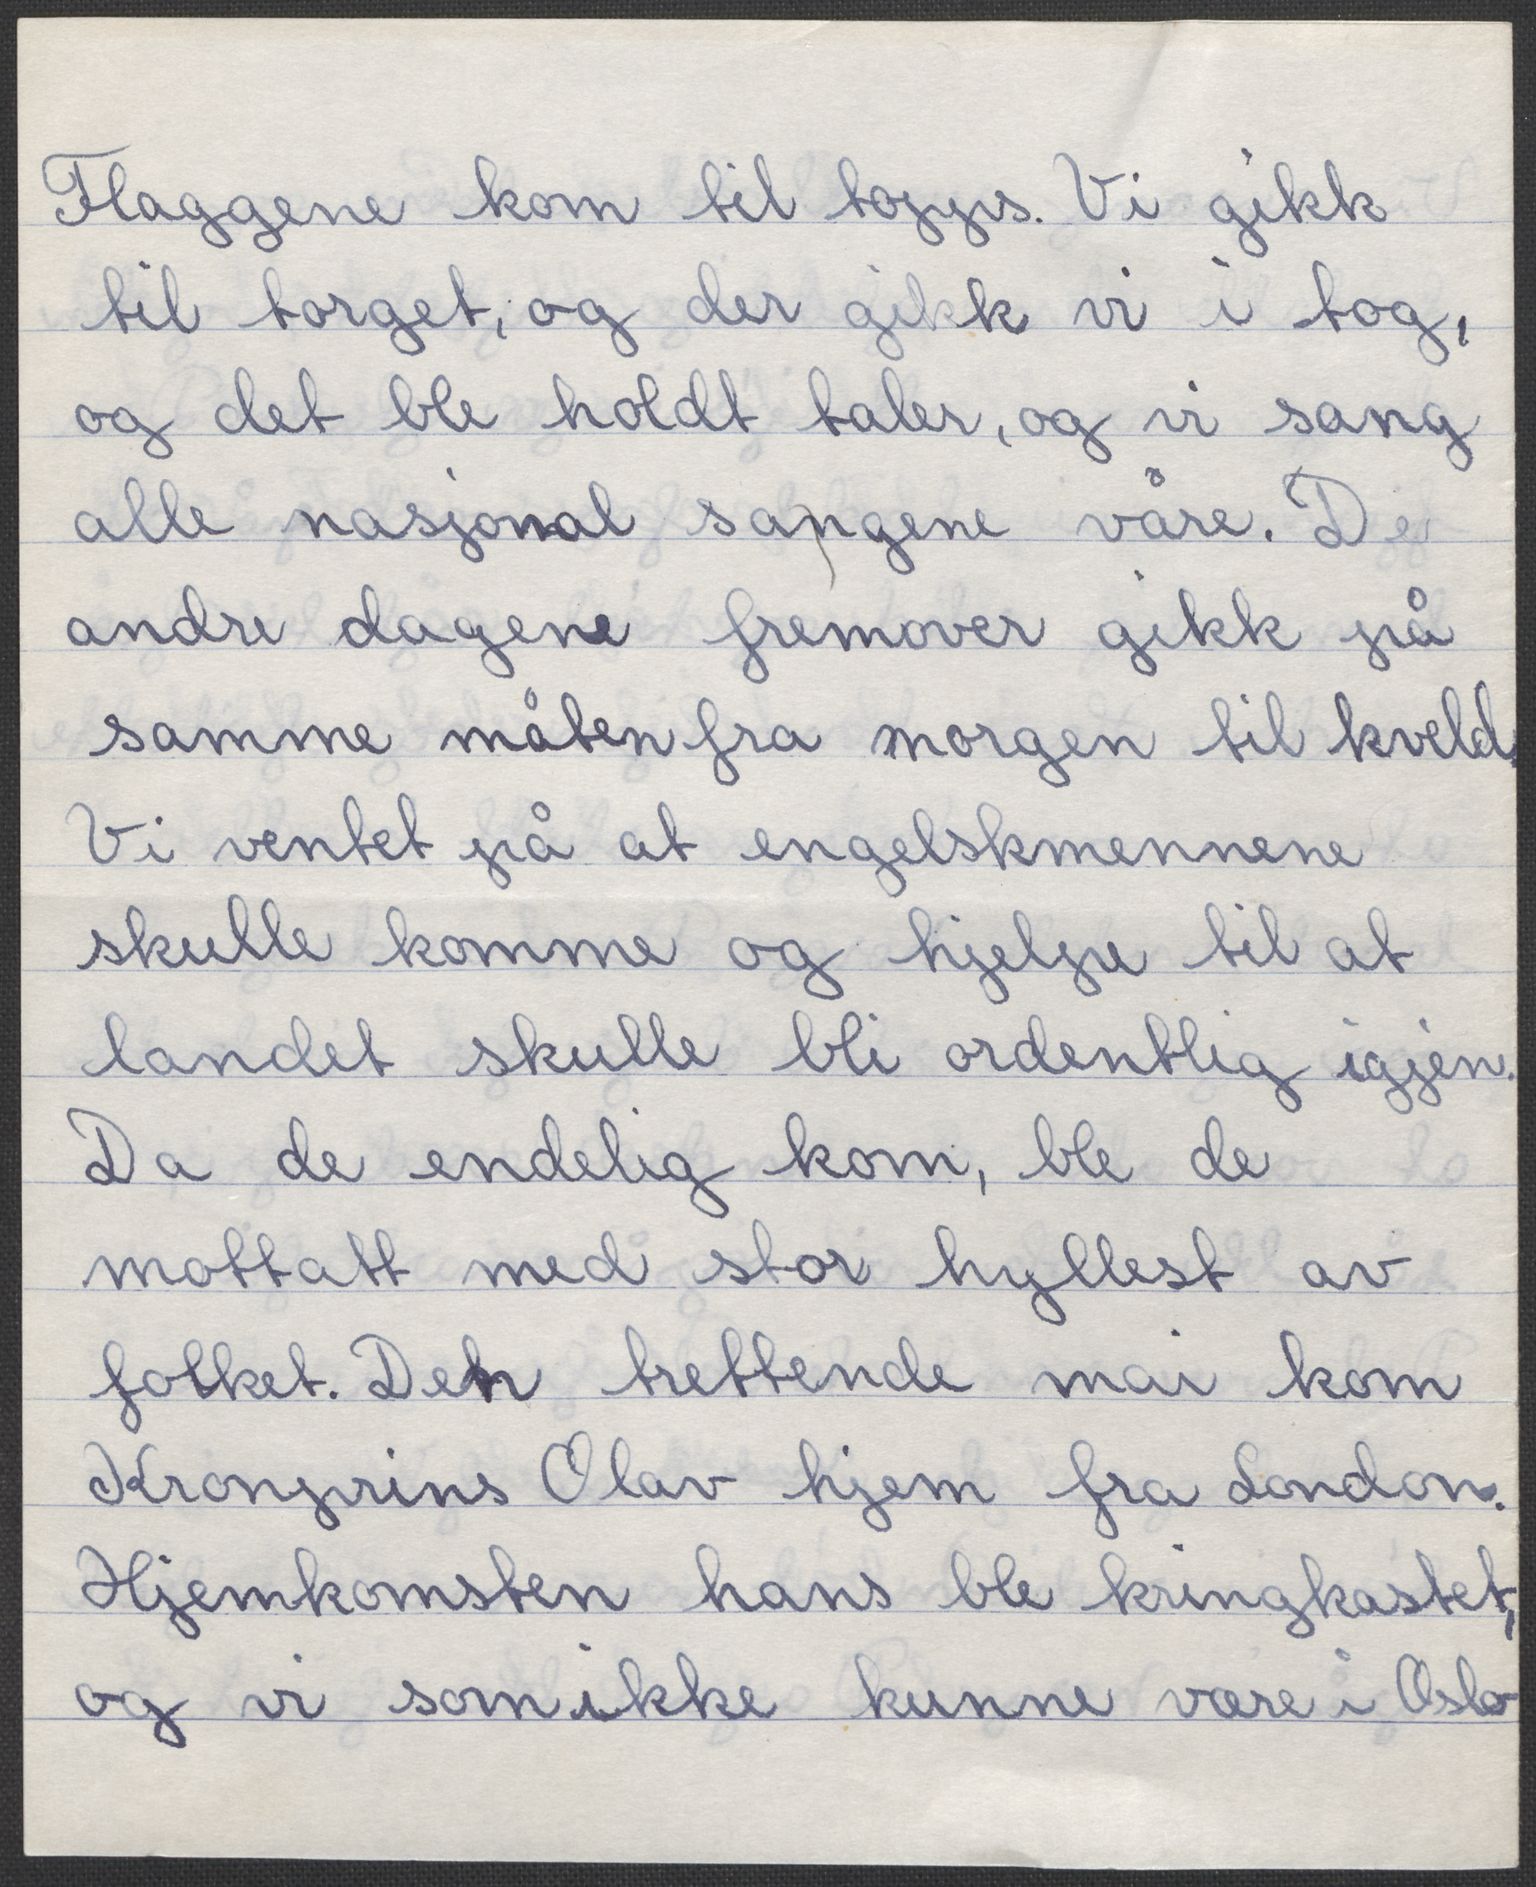 Flaggene kom til topps. Vi gikk
til torget, og der gikk vi i tog,
og det ble holdt taler, og vi sang
alle nasjonal sangene våre. De
andre dagene fremover gikk på
samme måten fra morgen til kveld.
Vi ventet på at engelskmennene
skulle komme og hjelpe til at
landet skulle bli ordentlig igjen.
Da de endelig kom, ble de
mottatt med stor hyllest av
folket. Den trettende mai kom
Kronprins Olav hjem fra London.
Hjemkomsten hans ble kringkastet,
og vi som ikke kunne være i Oslo